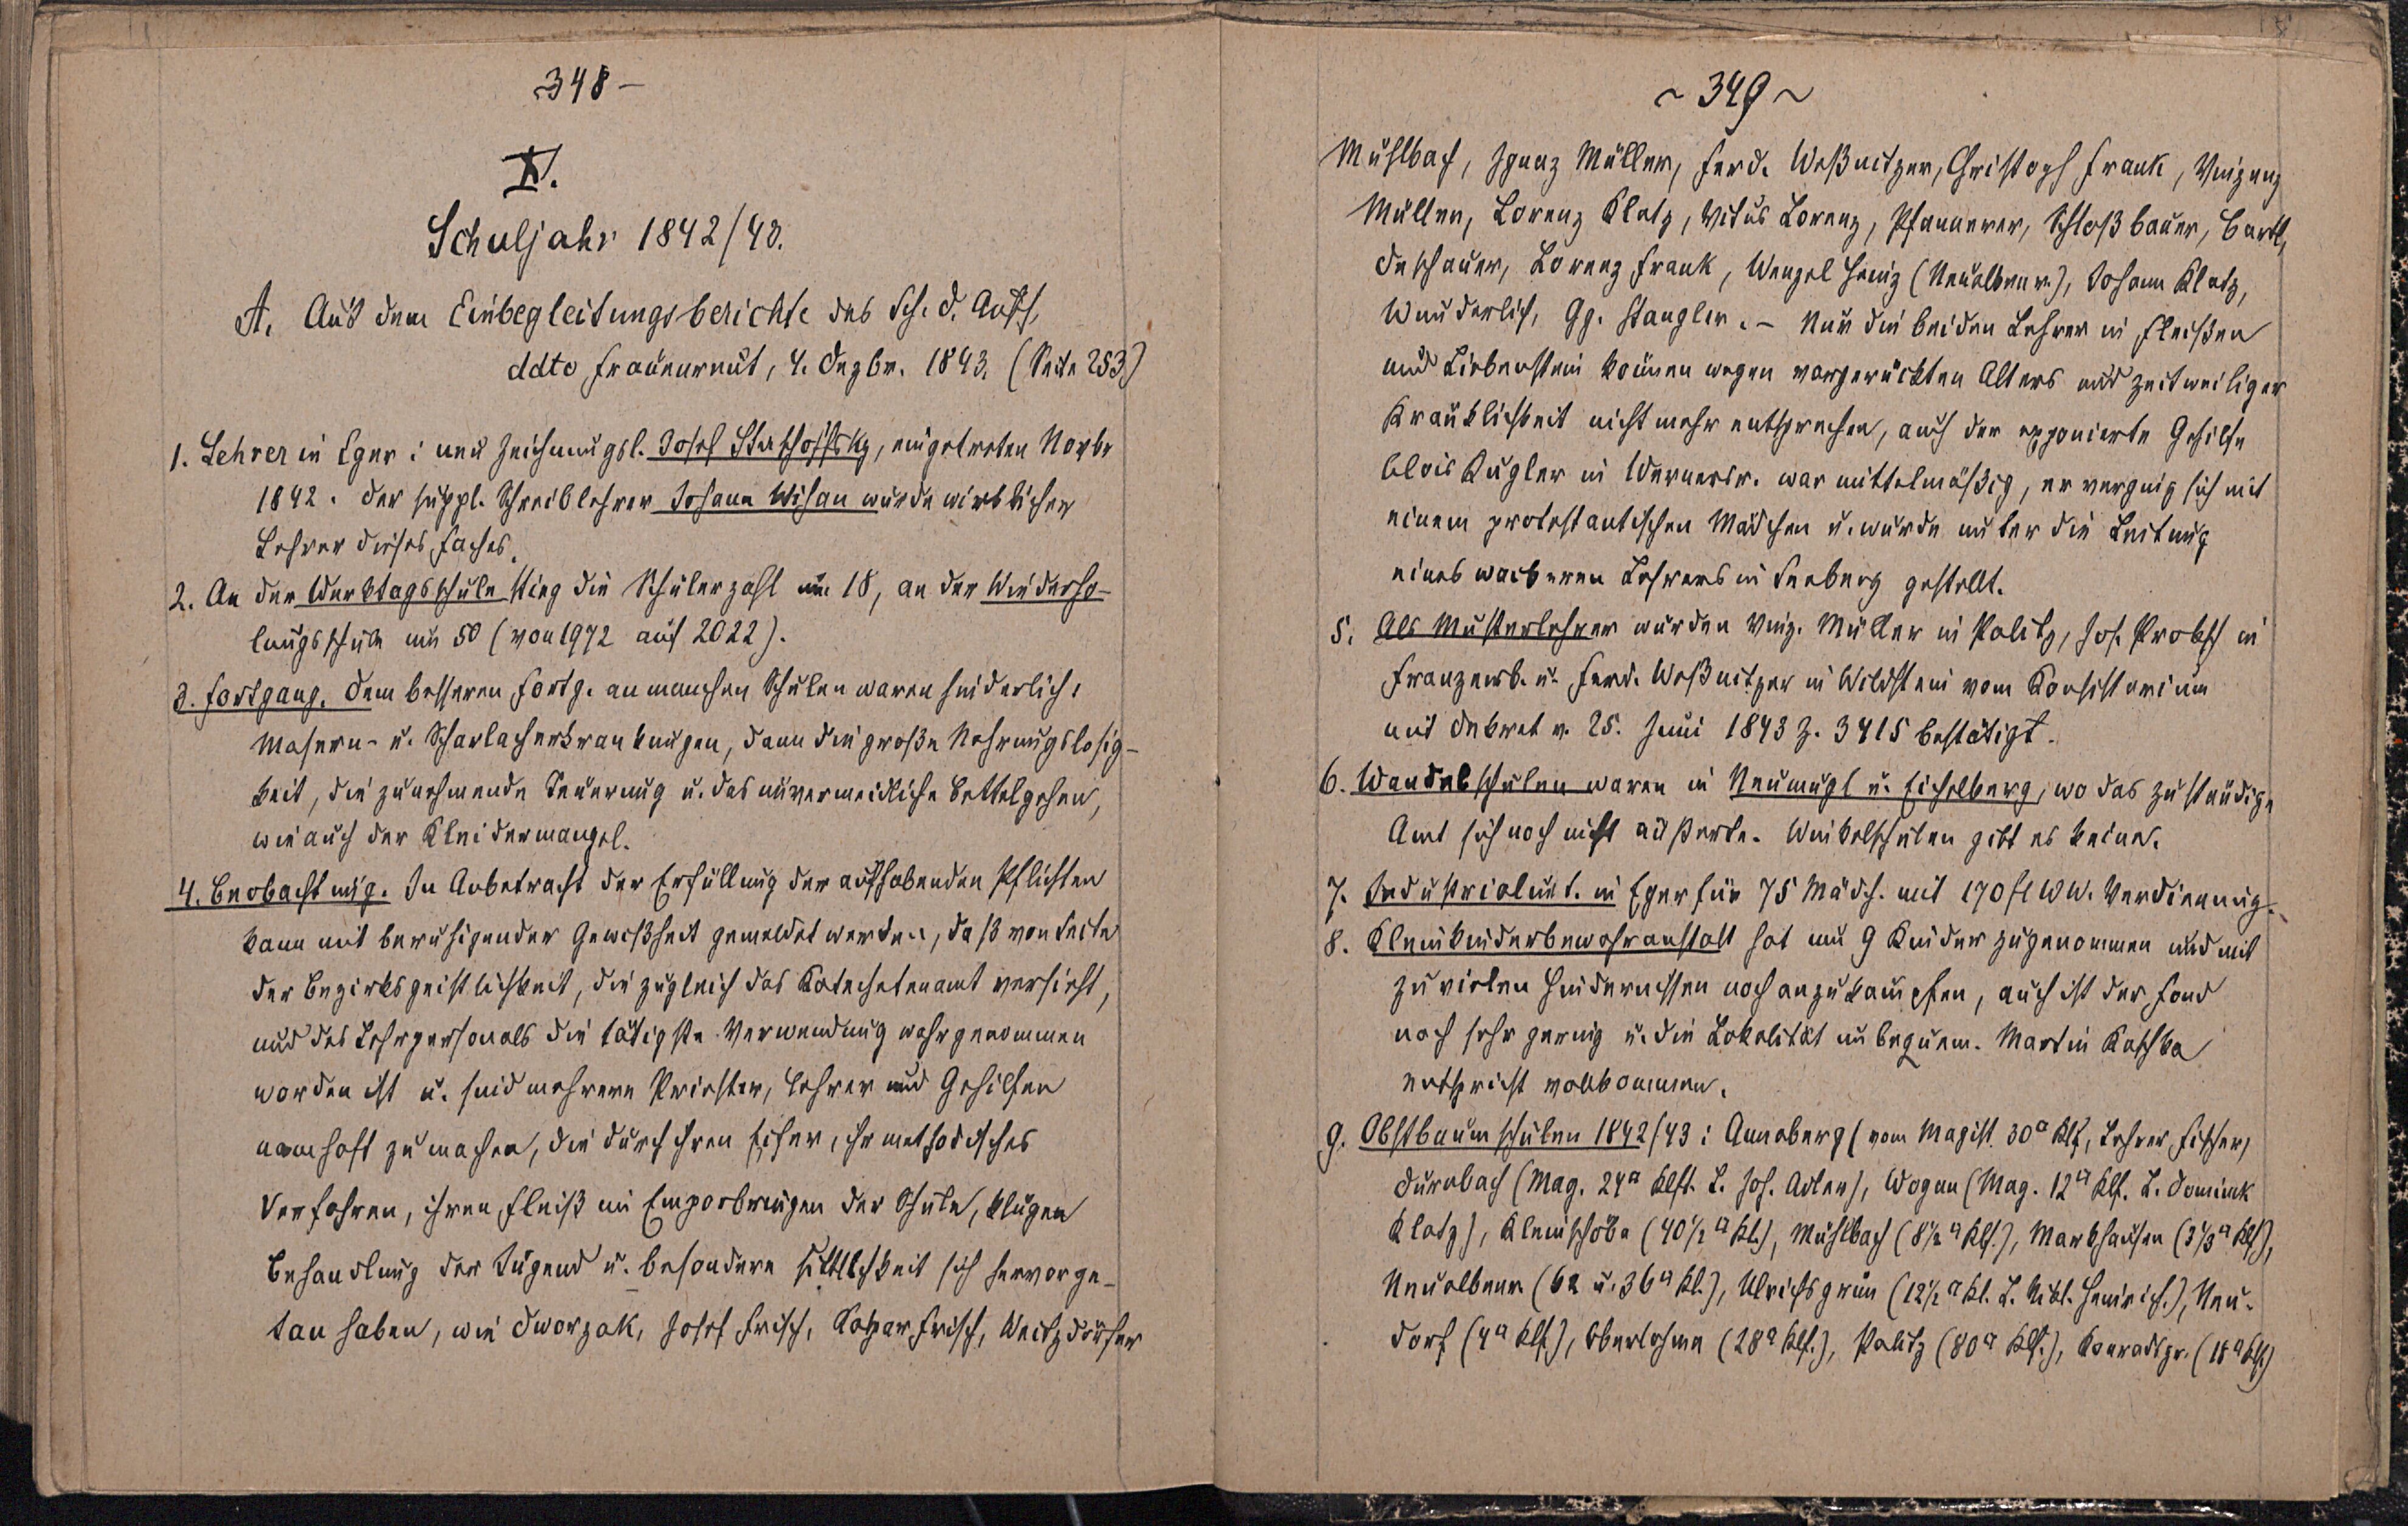 348 –
X.
Schuljahr 1842/43.
A. Aus dem Einbegleitungsberichte des Sch. d. Aufs.
ddto Frauenreut, 4. Dezbr. 1843. (Seite 253)
1. Lehrer in Eger: neu Zeichnungsl. Josef, eingetreten Novbr
1842. Der suppl. Schreiblehrer Johann Wihan wurde wirklicher
Lehrer dieses Faches.
2. An der Werktagsschule stieg die Schülerzahl um 18, an der Wiederho-
lungsschule um 50 (von 1972 auf 2022).
3. Fortgang. Dem besseren Fortg. an manchen Schulen waren hinderlich:
Masern- u. Scharlacherkrankungen, dann die große Nahrungslosig-
keit, die zunehmende Teuerung u. das unvermeidliche Bettelgehen,
wie auch der Kleidermangel.
4. Beobachtung. In Anbetracht der Erfüllung der aufhabenden Pflichten
kann mit beruhigender Gewißheit gemeldet werden, daß von Seite
der Bezirksgeistlichkeit, die zugleich das Katechetenamt versieht,
und des Lehrpersonals die tätigste Verwendung wahrgenommen
worden ist u. sind mehrere Priester, Lehrer und Gehilfen
namhaft zu machen, die durch ihren Eifer, ihr methodisches
Verfahren, ihren Fleiß im Emporbringen der Schule, klugen
Behandlung der Jugend u. besondere Sittlichkeit sich hervorge-
tan haben, wie Dworzak, Josef Frisch, Kaspar Frisch, Weitzdörfer
~ 349 ~
Mühlbach, Ignaz Müller, Ferd. Woßnitzer, Christoph Frank, Vinzenz
Müller, Lorenz Klatz, Vitus Lorenz, Pfannerer, Schloßbauer, Bartl,
Deschauer, Lorenz Frank, Wenzel Heinz (Neualbenr.), Johann Klatz,
Wunderlich, Gg. Stangler. – Nur die beiden Lehrer in Fleißen
und Liebenstein können wegen vorgerückten Alters und zeitweiliger
Kränklichkeit nicht mehr entsprechen, auch der exponierte Gehilfe
Alois Kugler in Wernersr. war mittelmäßig, er verging sich mit
einem protestantischen Mädchen u. wurde unter die Leitung
eines wackeren Lehrers in Seeberg gestellt.
5. Als Musterlehrer wurden Vinz. Müller in Palitz, Jos. Probst in
Franzensb. u. Ferd. Woßnitzer in Wildstein vom Konsistorium
mit Dekret v. 25. Juni 1843 Z. 3415 bestätigt.
6. Wandelschulen waren in Neumugl u. Eichelberg, wo das zuständige
Amt sich noch nicht äußerte. Winkelschulen gibt es keine.
7. Industrialunt. in Eger für 75 Mädch. mit 170 fl WW. Verdienung.
8. Kleinkinderbewahranstalt hat um 9 Kinder zugenommen und mit
zu vielen Hindernissen noch anzukämpfen, auch ist der Fond
noch sehr gering u. die Lokalität unbequem. Martin Kaschka
entspricht vollkommen.
9. Obstbaumschulen 1842/43: Annaberg (vom Magist. 30 □ Klf., Lehrer Fischer,
Dürnbach (Mag. 24 □ Klft. L. Joh. Adler), Wogau (Mag. 12 □ Klf. L. Dominik
Klatz), Kleinschöba (40 1/2 □ Kl.), Mühlbach (8 1/2 □ Klf.), Markhausen (3 1/3 □ Klf.),
Neualbenr. (62 u. 36 □ Kl.), Ulrichsgrün (12 1/2 □ Kl. L. Nikl. Heinrich.), Neu-
dorf (4 □ Klf.), Oberlohma (28 □ Klf.), Palitz (80 □ Klf.), Konradsgr. (18 □ Klf.)